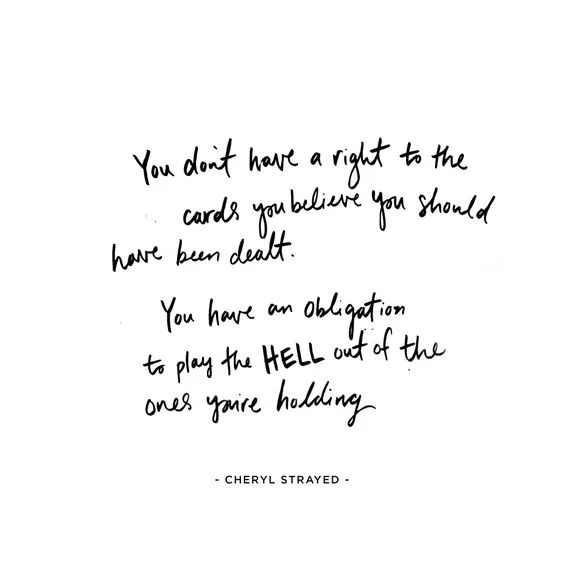 You don't have a right to the
cards you believe you should
have been dealt.
You have an obligation
to play the HELL out of the
ones you're holding
- CHERYL STRAYED -